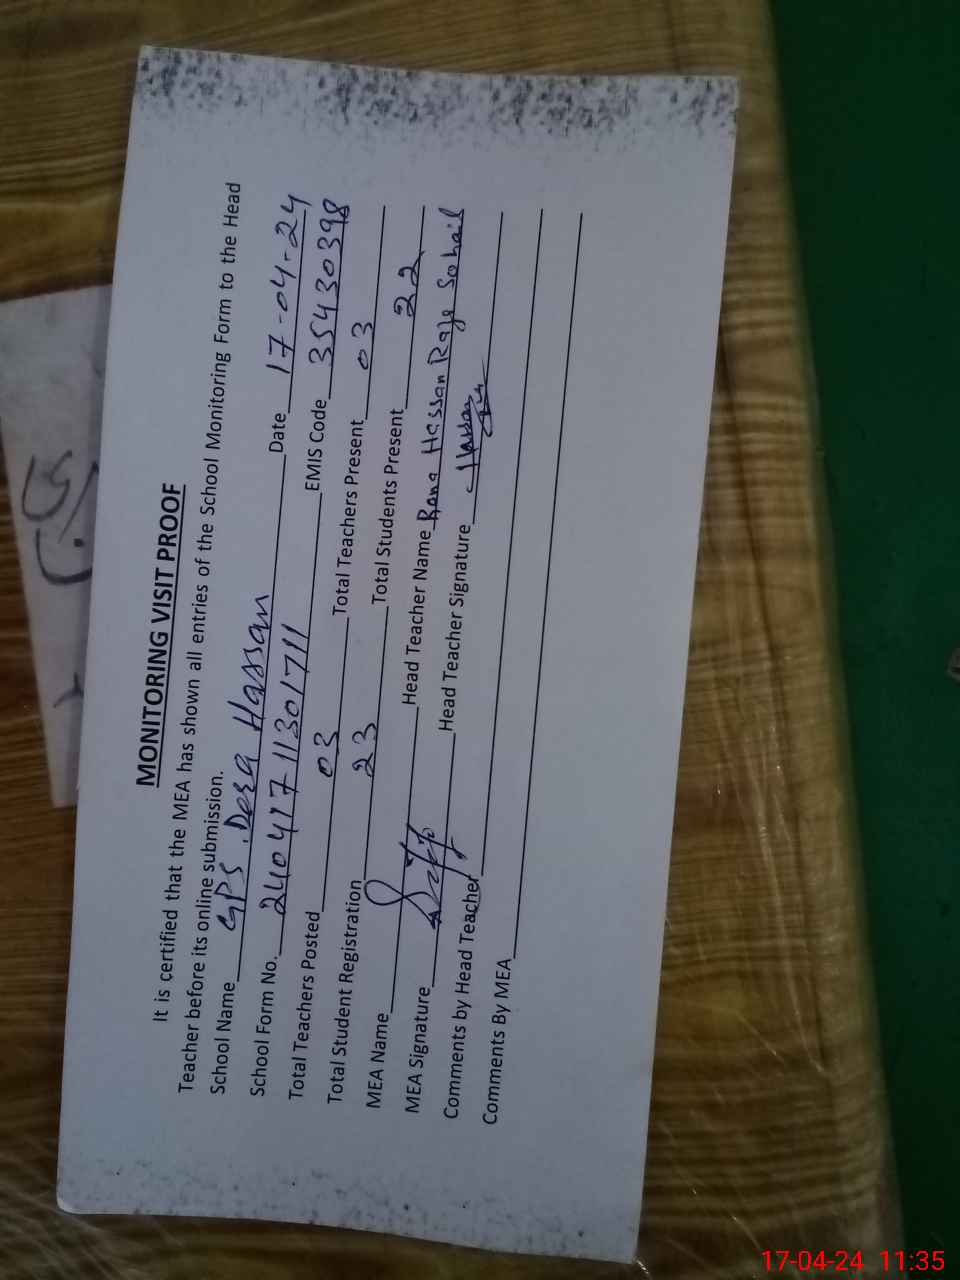 MONITORING VISIT PROOF
It is certified that the MEA has shown all entries of the School Monitoring Form to the Head
Teacher before its online submission.
School Name GPS Dera Hassan Date 17-04-24
School Form No. 240417 11301711 EMIS Code 35430398
Total Teachers Posted 03 Total Teachers Present 03
Total Student Registration 23 Total Students Present 22
MEA Name Head Teacher Name Rana Hassan Raza Sohail
MEA Signature Head Teacher Signature Hassan
Comments by Head Teacher
Comments By MEA
17-04-24 11:35